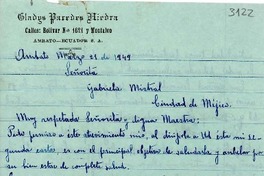 Gladys Paredes Niedra
Calles: Bolívar Nº 1621 y Montalvo
AMBATO-ECUADOR S. A.
3122
Ambato Marzo 21 de 1949
Señorita
Gabriela Mistral
Ciudad de Méjico.
Muy respetada Señorita, y digna Maestra:
Pido permiso a este atrevimiento mío, al dirijirle a Ud ésta mi segunda carta, es con el principal objetivo de saludarla y anhelar por
su bien estar de completa salud.